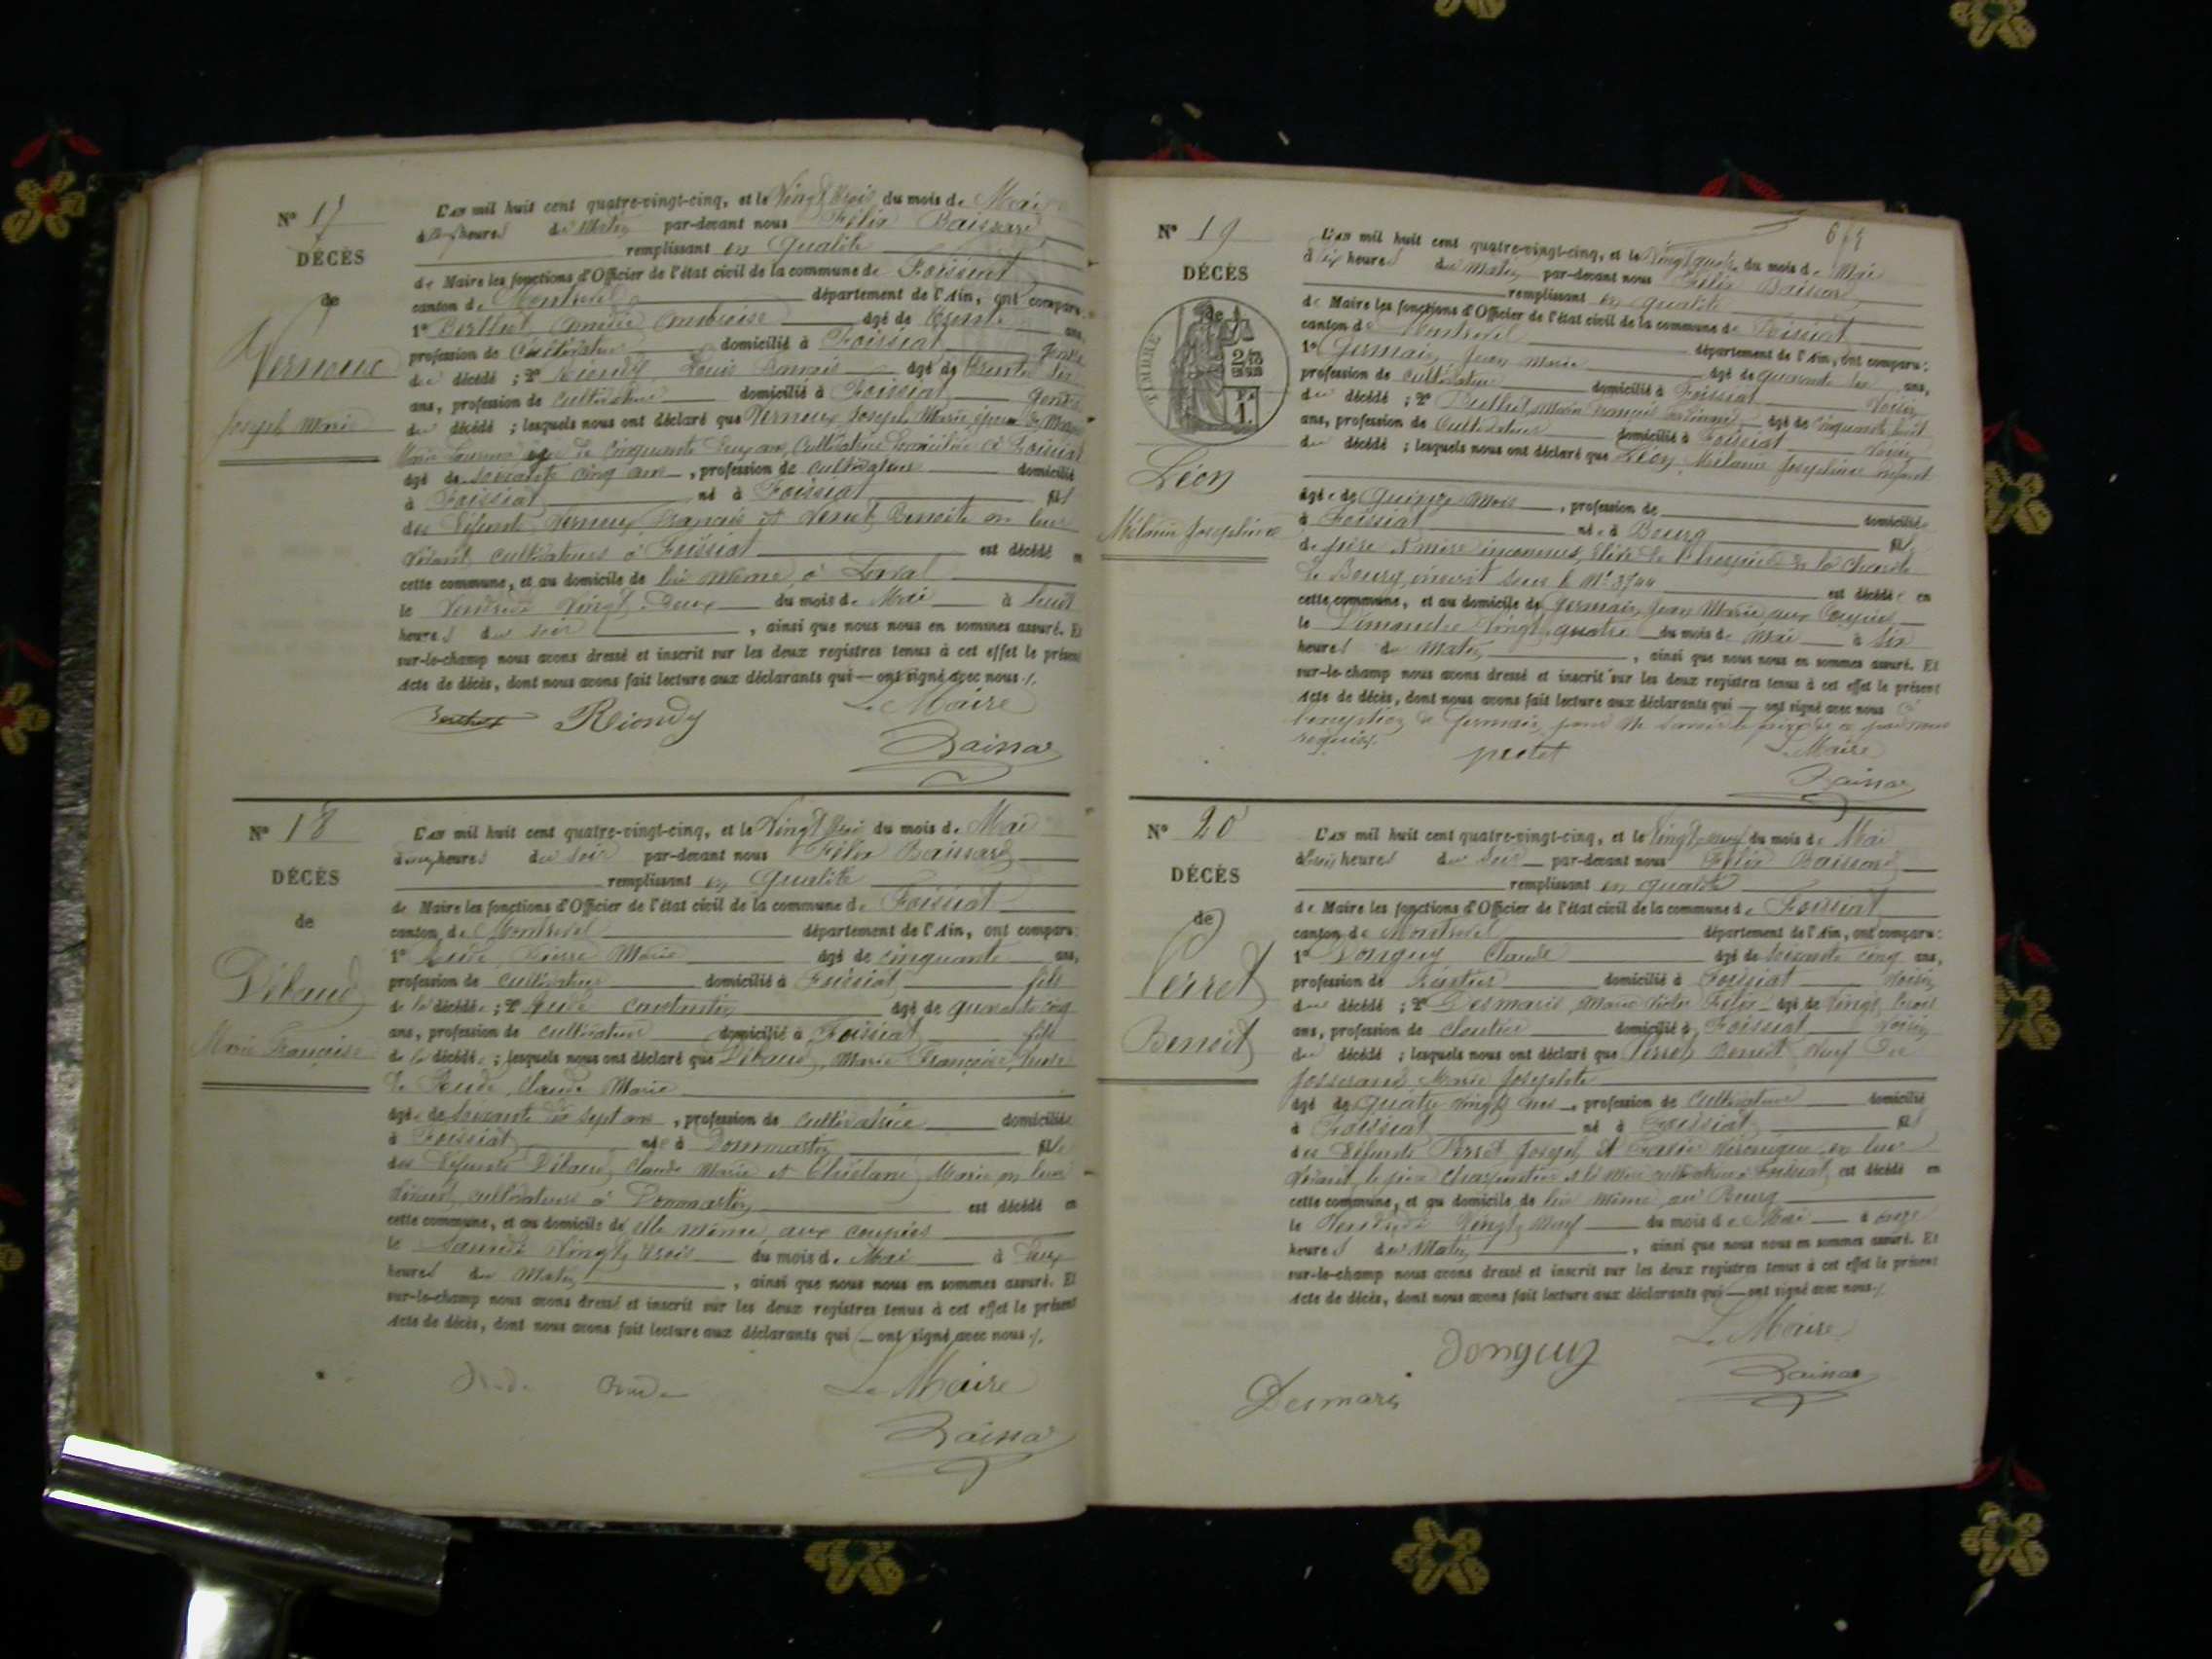 Nº 17
DÉCÈS
de
Vernoux
Joseph Marie
L'AN mil huit cent quatre-vingt-cinq, et le Vingt trois du mois de Mai
heures du Matin par-devant nous Félix Baissard
remplissant en qualité
de Maire les fonctions d'Officier de l'état civil de la commune de Foissiat
canton de Montrevel département de l'Ain, ont comparu
1º Berthet âgé de trente ans,
profession de Cultivateur domicilié à Foissiat gendre
du décédé ; 2º Riondy Louis âgé de trente
ans, profession de Cultivateur domicilié à Foissiat gendre
du décédé ; lesquels nous ont déclaré que Vernoux Joseph Marie époux de
Marie âgée de Cinquante ans, Cultivatrice domiciliée à Foissiat
âgé de soixante cinq ans, profession de cultivateur domicilié
à Foissiat né à Foissiat fils
des défunts Vernoux François et Benoite en leur
vivant cultivateurs à Foissiat est décédé en
cette commune, et au domicile de lui même à
le Vendredi Vingt Deux du mois de Mai à huit
heures du soir, ainsi que nous nous en sommes assuré. Et
sur-le-champ nous avons dressé et inscrit sur les deux registres tenus à cet effet le présent
Acte de décès, dont nous avons fait lecture aux déclarants qui — ont signé avec nous ./.
Riondy Le Maire
Baissard
Nº 18
DÉCÈS
de
Débaud
Marie Françoise
L'AN mil huit cent quatre-vingt-cinq, et le Vingt trois du mois de Mai
heures du soir par-devant nous Félix Baissard
remplissant en qualité
de Maire les fonctions d'Officier de l'état civil de la commune de Foissiat
canton de Montrevel département de l'Ain, ont comparu :
1º Pierre Marie âgé de cinquante ans,
profession de cultivateur domicilié à Foissiat fils
de la décédée ; 2º Constantin âgé de quarante cinq
ans, profession de cultivateur domicilié à Foissiat fils
de la décédée ; lesquels nous ont déclaré que Débaud, Marie Françoise, veuve
de Claude Marie
âgée de soixante dix sept ans, profession de cultivatrice domiciliée
à Foissiat née à Dommartin fille
des défunts Débaud, Claude Marie et Marie en leur
vivant cultivateurs à Dommartin est décédée en
cette commune, et au domicile de elle même, aux coupies
le Samedi Vingt trois du mois de Mai à deux
heures du Matin, ainsi que nous nous en sommes assuré. Et
sur-le-champ nous avons dressé et inscrit sur les deux registres tenus à cet effet le présent
Acte de décès, dont nous avons fait lecture aux déclarants qui — ont signé avec nous ./.
Le Maire
Baissard
Nº 19
DÉCÈS
de
TIMBRE
Léon
Mélanie Joséphine
L'AN mil huit cent quatre-vingt-cinq, et le Vingt quatre du mois de Mai
à dix heures du Matin par-devant nous Félix Baissard
remplissant en qualité
de Maire les fonctions d'Officier de l'état civil de la commune de Foissiat
canton de Montrevel département de l'Ain, ont comparu :
1º Germain, Jean Marie âgé de quarante six ans,
profession de cultivateur domicilié à Foissiat voisin
du décédé ; 2º âgé de Cinquante huit
ans, profession de Cultivateur domicilié à Foissiat voisin
du décédé ; lesquels nous ont déclaré que Léon, Mélanie Joséphine enfant
âgée de Quinze Mois, profession de domiciliée
à Foissiat née à Bourg fille
de père et mère inconnus, élève de l'hospice de la Charité
de Bourg, inscrit sous le Nº 3744 est décédée en
cette commune, et au domicile de Germain Jean Marie, aux Coupies
le Dimanche Vingt quatre du mois de Mai à six
heures du Matin, ainsi que nous nous en sommes assuré. Et
sur-le-champ nous avons dressé et inscrit sur les deux registres tenus à cet effet le présent
Acte de décès, dont nous avons fait lecture aux déclarants qui — ont signé avec nous à
l'exception de Germain, pour ne savoir le faire de ce par nous
requis.
Le Maire
Baissard
Nº 20
DÉCÈS
de
Perret
Benoit
L'AN mil huit cent quatre-vingt-cinq, et le Vingt neuf du mois de Mai
à trois heures du Soir par-devant nous Félix Baissard
remplissant en qualité
de Maire les fonctions d'Officier de l'état civil de la commune de Foissiat
canton de Montrevel département de l'Ain, ont comparu :
1º Donguy Claude âgé de soixante cinq ans,
profession de Rentier domicilié à Foissiat voisin
du décédé ; 2º Desmaris, Marie Victor Félix âgé de Vingt trois
ans, profession de cloutier domicilié à Foissiat voisin
du décédé ; lesquels nous ont déclaré que Perret Benoit veuf de
Josserand, Marie Josephte
âgé de Quatre vingts ans, profession de Cultivateur domicilié
à Foissiat né à Foissiat fils
des défunts Perret Joseph et Véronique en leur
vivant, le père Charpentier et la mère cultivatrice à Foissiat, est décédé en
cette commune, et au domicile de lui même, au Bourg
le Vendredi Vingt neuf du mois de Mai à onze
heures du Matin, ainsi que nous nous en sommes assuré. Et
sur-le-champ nous avons dressé et inscrit sur les deux registres tenus à cet effet le présent
Acte de décès, dont nous avons fait lecture aux déclarants qui — ont signé avec nous ./.
Donguy Le Maire
Desmaris Baissard